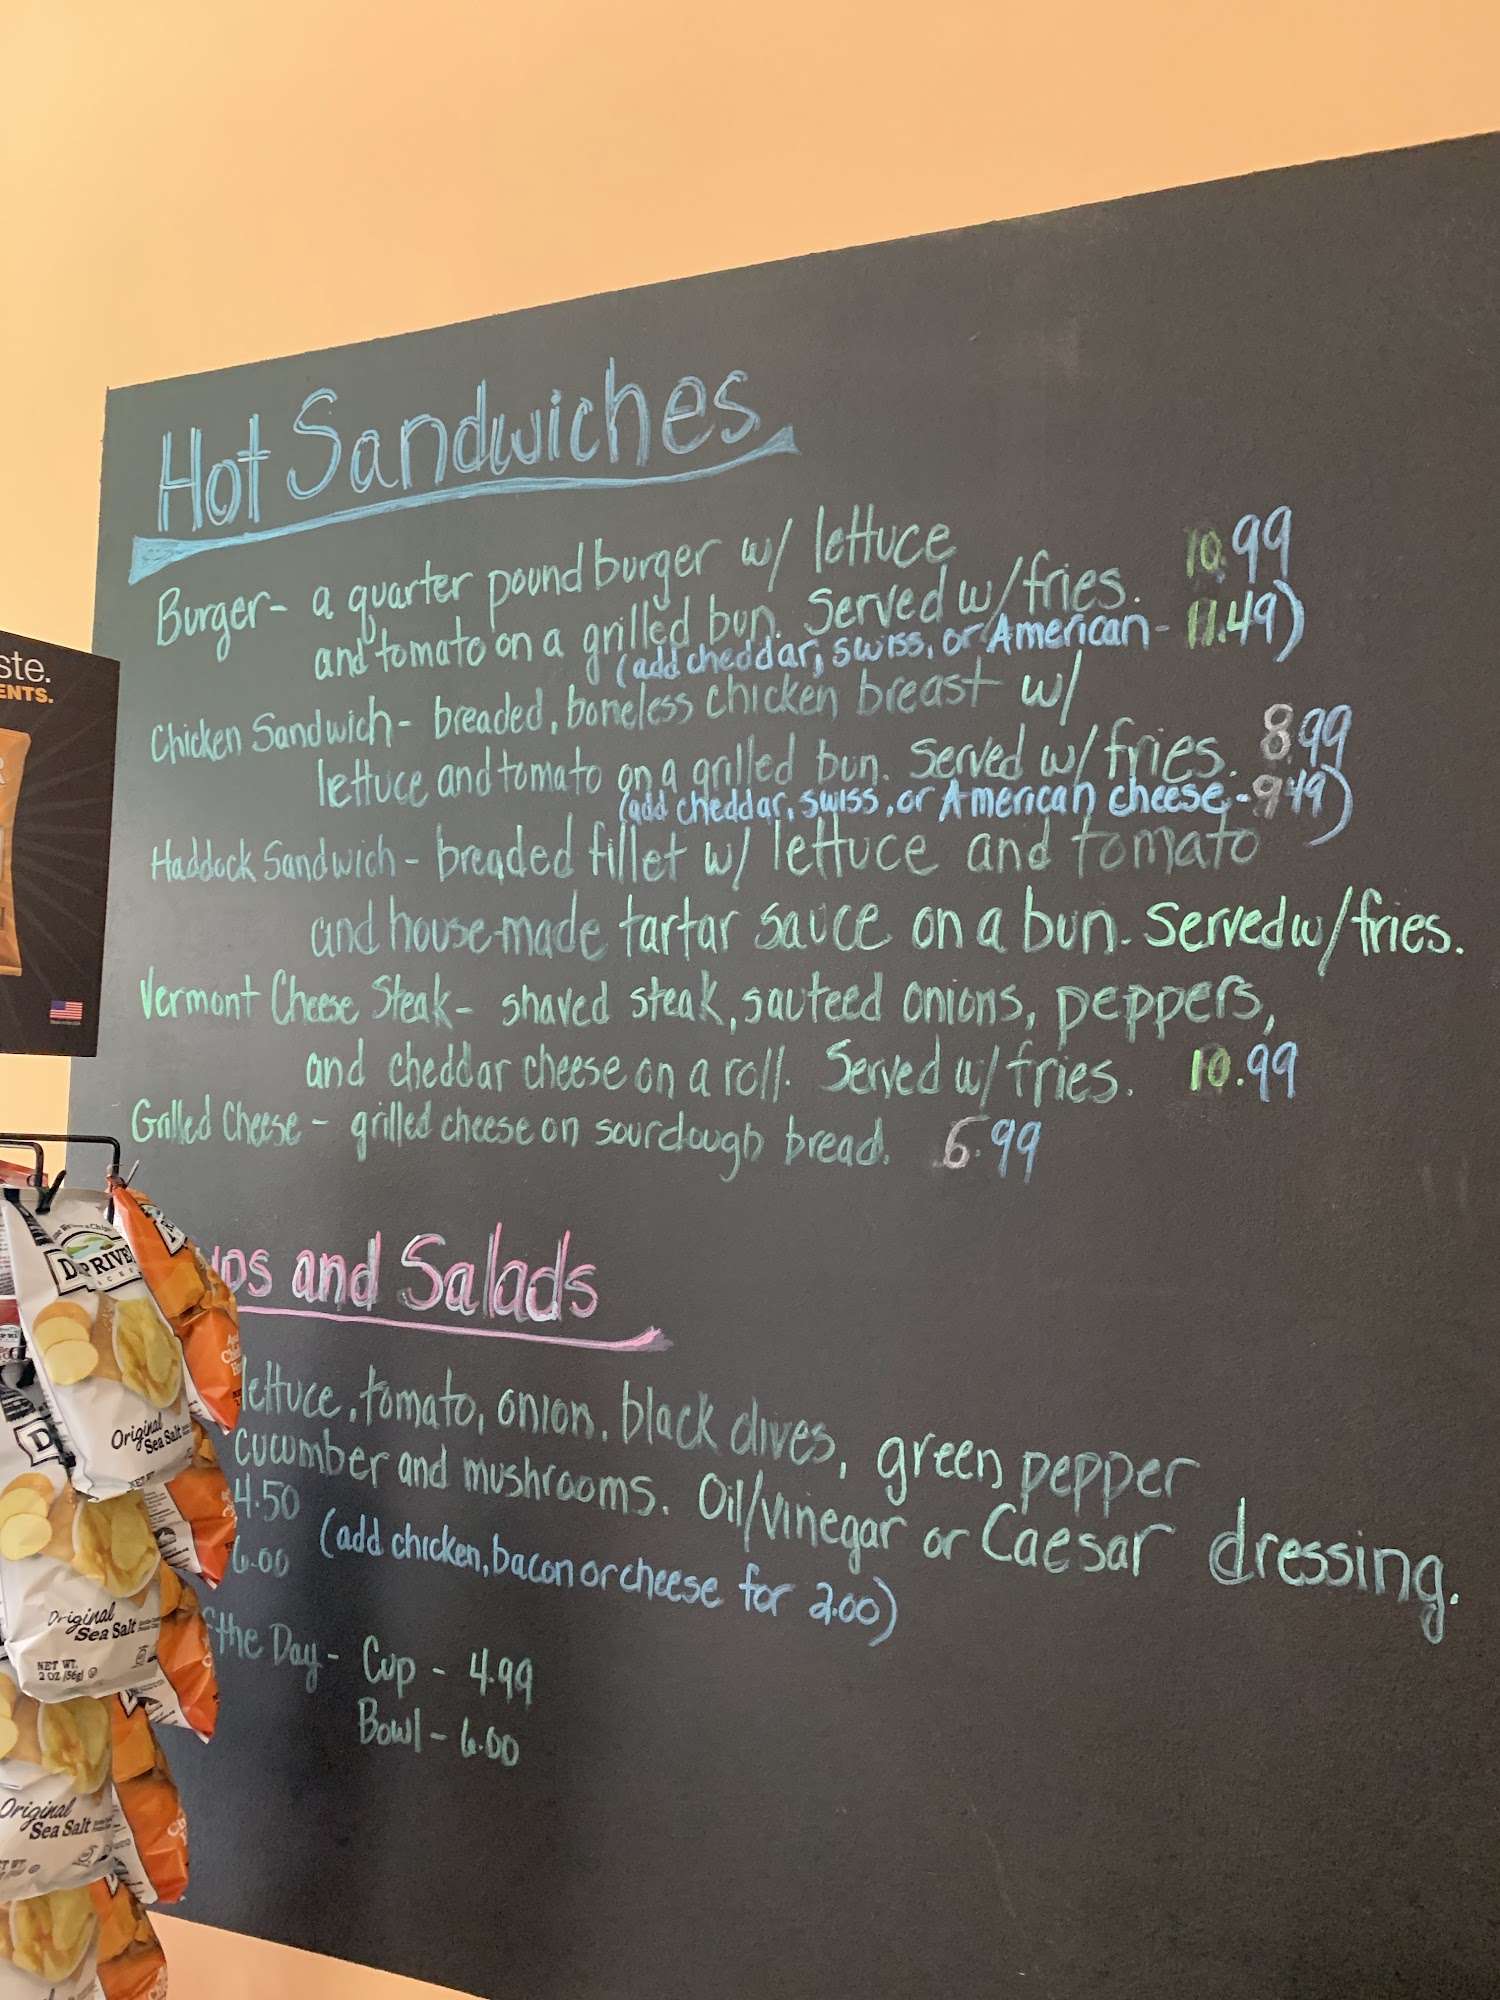 Hot Sandwiches
Burger- a quarter pound burger w/ lettuce 10.99
and tomato on a grilled bun. Served w/fries.
(add cheddar, swiss, or American - 11.49)
Chicken Sandwich- breaded, boneless chicken breast w/
lettuce and tomato on a grilled bun. Served w/fries. 8.99
(add cheddar, swiss, or American cheese - 9.49)
Haddock Sandwich- breaded fillet w/ lettuce and tomato
and house-made tartar sauce on a bun. Served w/fries.
Vermont Cheese Steak- shaved steak, sauteed onions, peppers,
and cheddar cheese on a roll. Served w/fries. 10.99
Grilled Cheese - grilled cheese on sourdough bread. 6.99
and Salads
lettuce, tomato, onion, black olives, green pepper
cucumber and mushrooms. Oil/vinegar or Caesar dressing.
4.50
6.00 (add chicken, bacon or cheese for 2.00)
the Day- Cup - 4.99
Bowl - 6.00
ste.
ENTS.
Original
Sea Salt
Original
Sea Salt
NET WT.
2 OZ (56g)
Original
Sea Salt